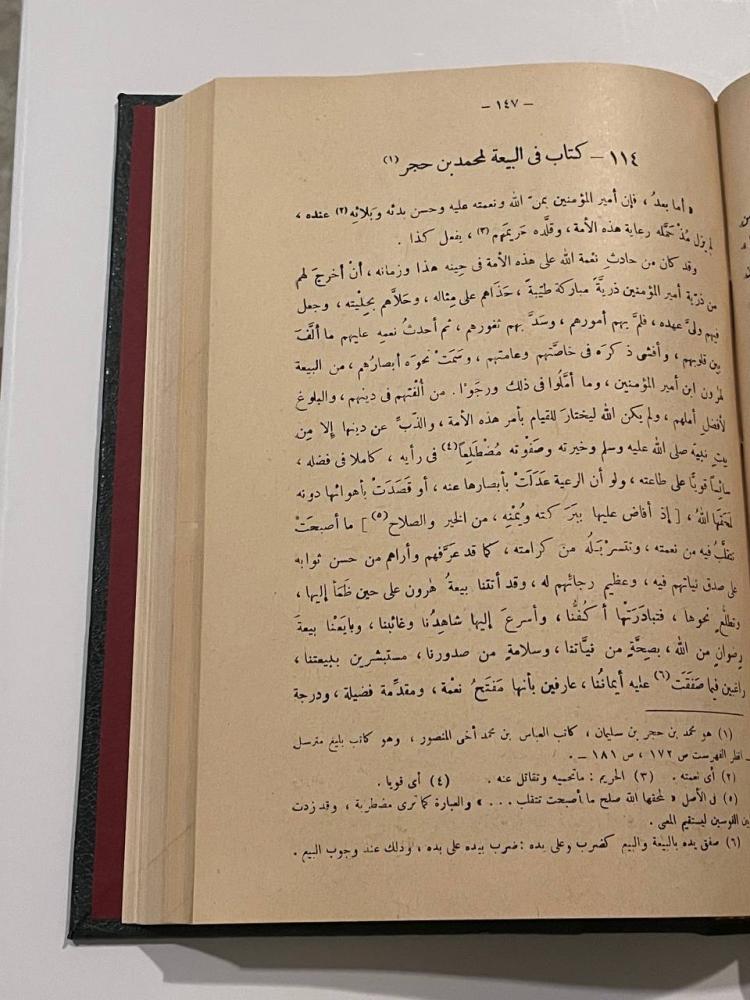 — ١٤٧ —
١١٤ — كتاب فى البيعة لمحمد بن حجر (١)
« أما بعدُ ، فإن أمير المؤمنين بمنّ الله ونعمته عليه وحسن بدئه وَبَلائِه (٢) عنده ،
لم يزل مُذ حَمَّله رعاية هذه الأمة ، وقلَّده حَرِيمَهم (٣) ، يفعل كذا .
وقد كان من حادثِ نعْمة الله على هذه الأمة فى حِينِه هذا وزمانه ، أنْ أخرجَ لهم
من ذرّية أمير المؤمنين ذريةً مباركة طيّبةً ، حَذَاهم على مِثاله ، وحَلاَّهم بِحِلْيته ، وجعل
فيهم ولىَّ عهده ، فلمَّ بهم أمورهم ، وسَدَّ بهم ثغورهم ، ثم أحدثُ نعمهِ عليهم ما ألَّفَ
بين قلوبهم ، وأفشى ذكرَه فى خاصَّتهم وعامتهم ، وسَمَتْ نحوَه أبصارُهم ، من البيعة
لهرون ابن أمير المؤمنين ، وما أمَّلُوا فى ذلك ورجَوْا . من أُلْفتهم فى دينهم ، والبلوغ
لأفضل أملهم ، ولم يكن الله ليختارَ للقيام بأمر هذه الأمة ، والذَّبِّ عن دينها إلا مِن
بيتِ نبيّه صلى الله عليه وسلم وخيرته وصَفْوته مُضْطَلِعاً (٤) فى رأيه ، كاملا فى فضله ،
سائِساً قويًّا على طاعته ، ولو أن الرعية عَدَلَتْ بأبصارها عنه ، أو قَصَدَتْ بأهوائها دونه
لَمَحَقَهَا اللهُ ، [ إذ أفاض عليها ببَرَكته ويُمْنِه ، من الخير والصلاح (٥) ] ما أصبحَتْ
تتقلَّبُ فيه من نعمته ، وتتسربَلُه من كرامته ، كما قد عَرَّفهم وأراهم من حسن ثوابه
على صدق نياتهم فيه ، وعظيم رجائهم له ، وقد أتتنا بيعةُ هٰرون على حين ظَمَأ إليها ،
وتطلُّعٍ نحوها ، فتبادَرَتْها أكُفُّنا ، وأسرعَ إليها شاهِدُنا وغائبنا ، وبايَعْنا بيعةَ
رِضوانٍ من الله ، بصِحَّةٍ من نيَّاتنا ، وسلامةٍ من صدورنا ، مستبشرين ببيعتنا ،
راغبين فيما صَفَقَت (٦) عليه أيمانُنا ، عارفين بأنها مَفتَحُ نعْمة ، ومقدِّمة فضيلة ، ودرجة
(١) هو محمد بن حجر بن سليمان ، كاتب العباس بن محمد أخى المنصور ، وهو كاتب بليغ مترسل
ـ انظر الفهرست ص ١٧٢ ، ص ١٨١ ـ .
(٢) أى نعمته . (٣) الحريم : ماتحميه وتقاتل عنه . (٤) أى قويا .
(٥) فى الأصل « لمحقها الله صلح ما أصبحت تتقلب . . . » والعبارة كما ترى مضطربة ، وقد زدت
بين القوسين ليستقيم المعنى .
(٦) صفق يده بالبيعة والبيع كضرب وعلى يده : ضرب بيده على يده ، وذلك عند وجوب البيع .